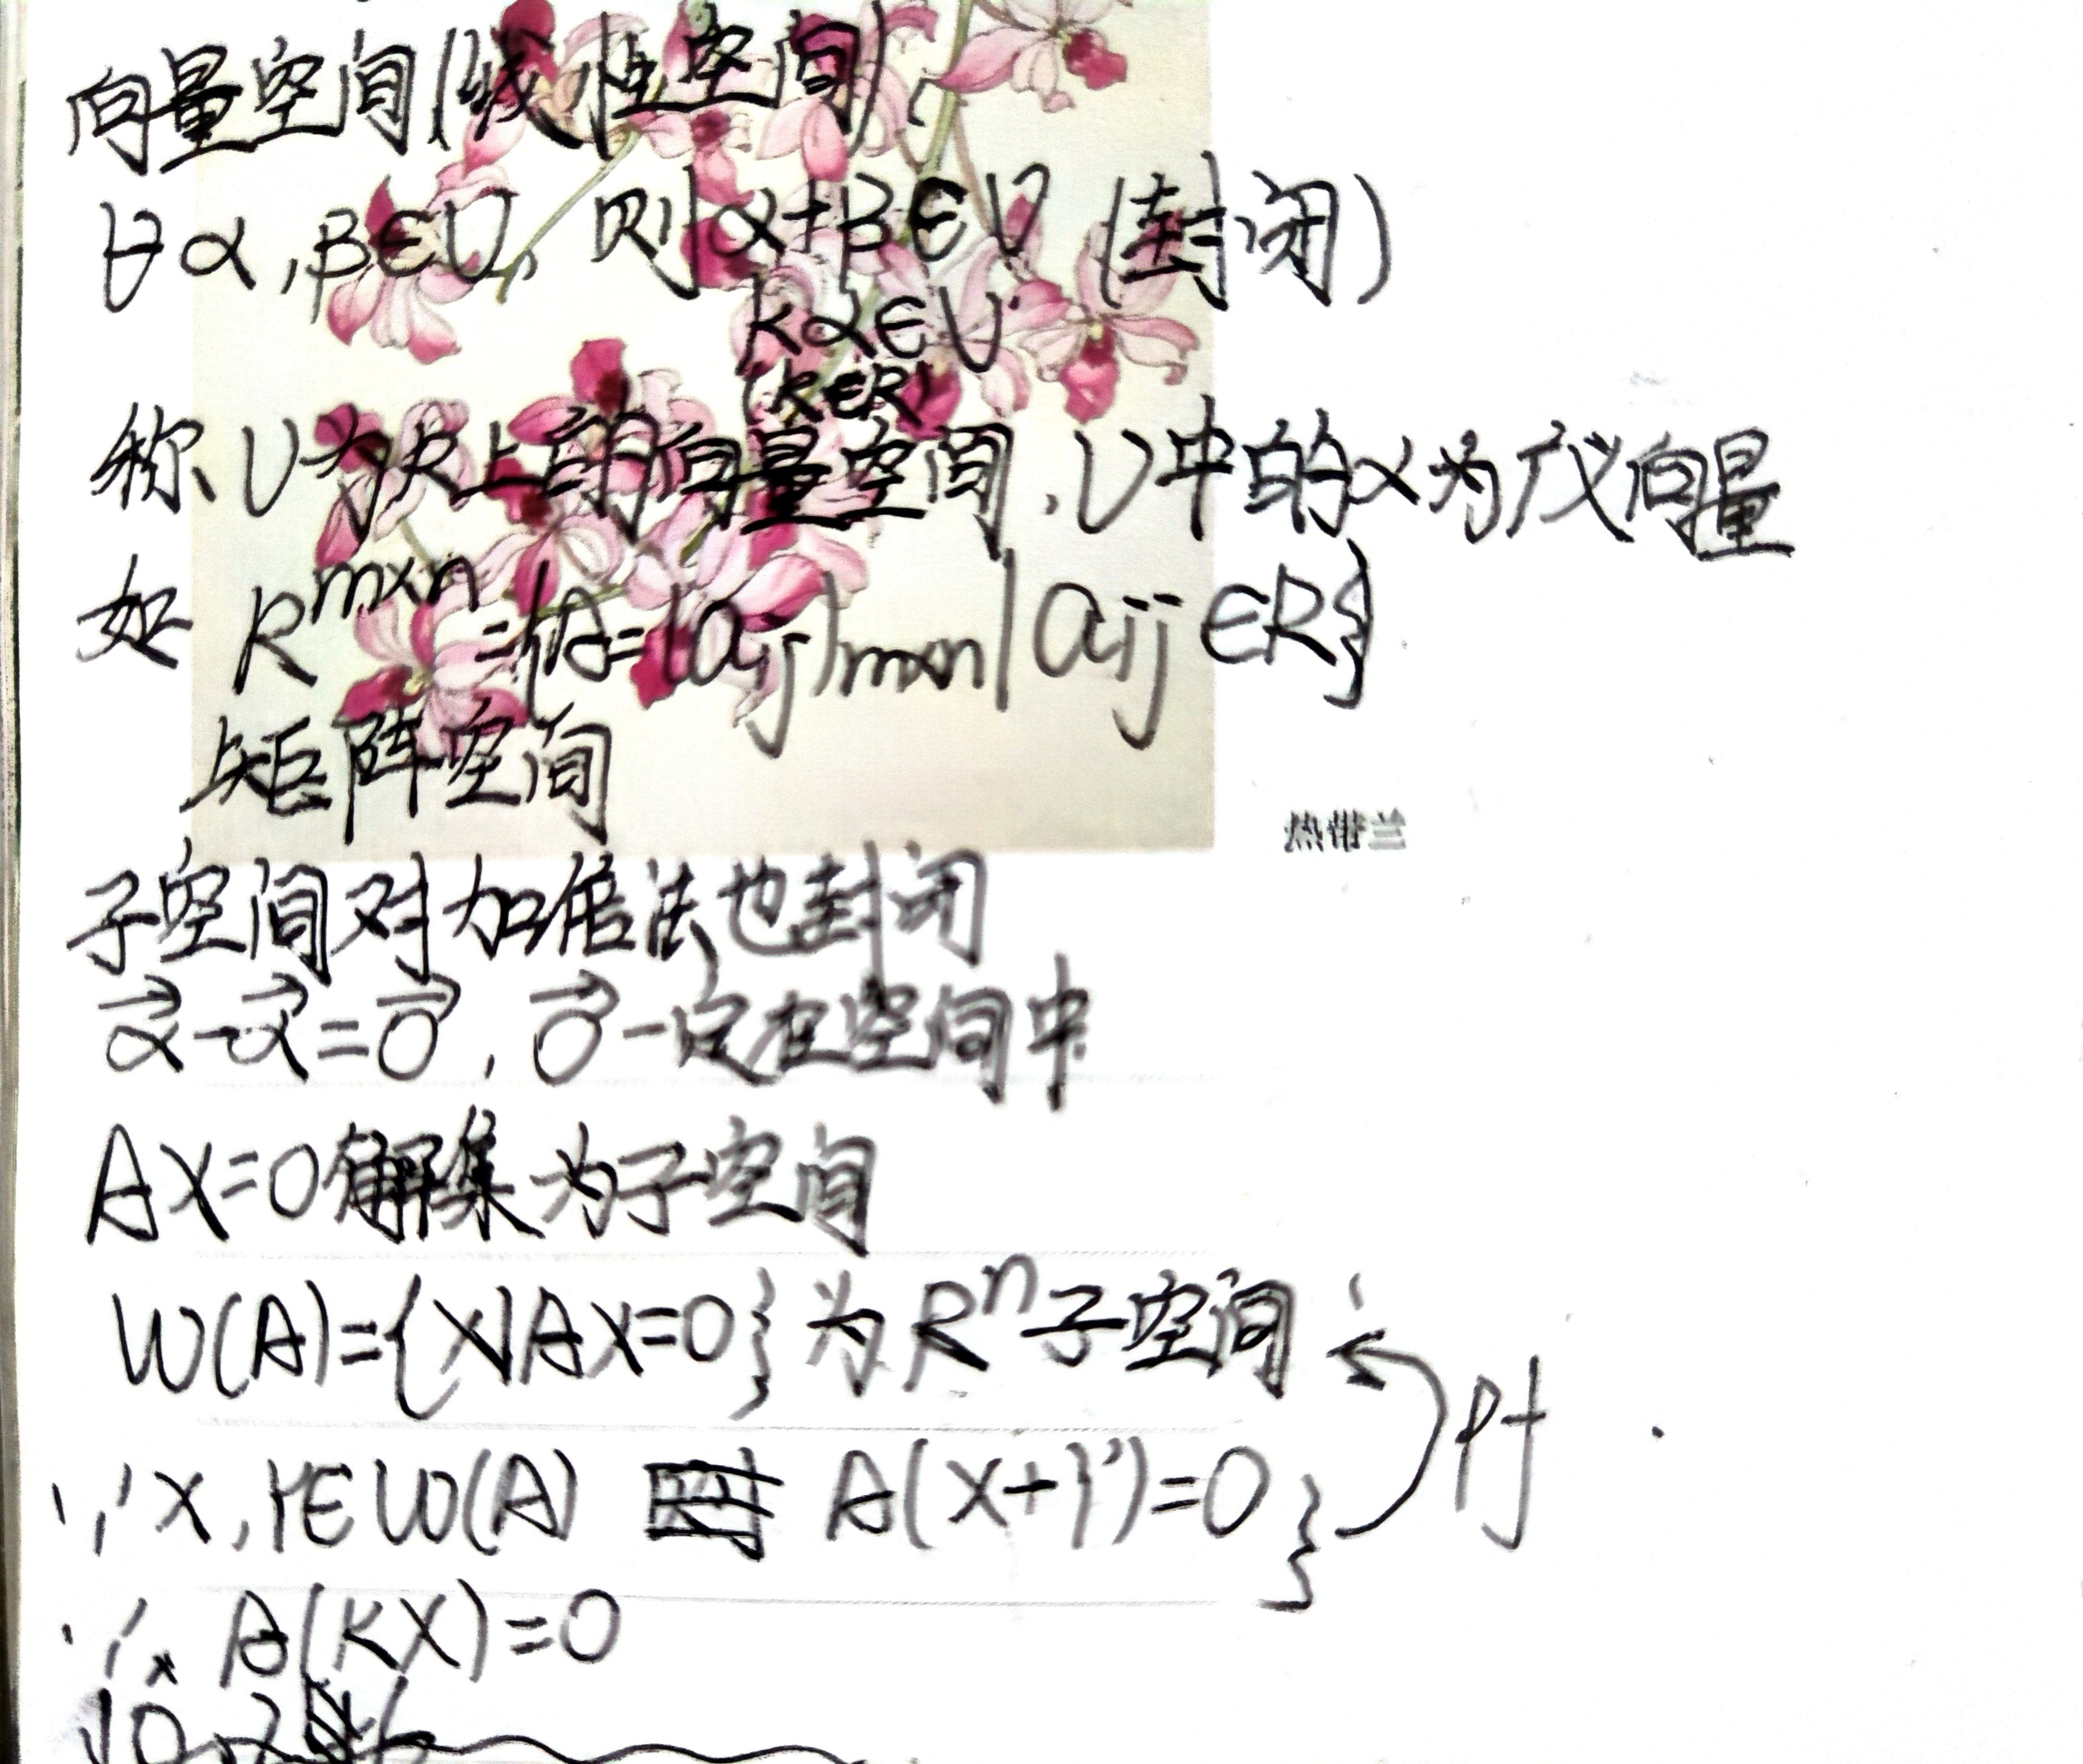 向量空间(线性空间).
∀α,β∈V, 则α+β∈V (封闭)
kα∈V
(k∈R)
称V为R上的向量空间.V中的α为广义向量
如 R^{m×n}={A=(aij)m×n|aij∈R}
矩阵空间
热带兰
子空间对加倍法也封闭
α⃗-α⃗=0⃗, 0⃗一定在空间中
AX=0解集为子空间
W(A)={X|AX=0}为R^n子空间
∵X,Y∈W(A) A(X+Y)=0 } pf
A(kX)=0